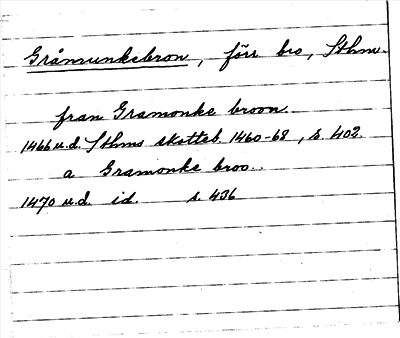 Gråmunkebron, förr bro, Sthm.
fran Gramonke broon.
1466 u.d. Sthms skotteb. 1460-68, s. 402
a Gramonke broo..
1470 u.d. id. s. 436